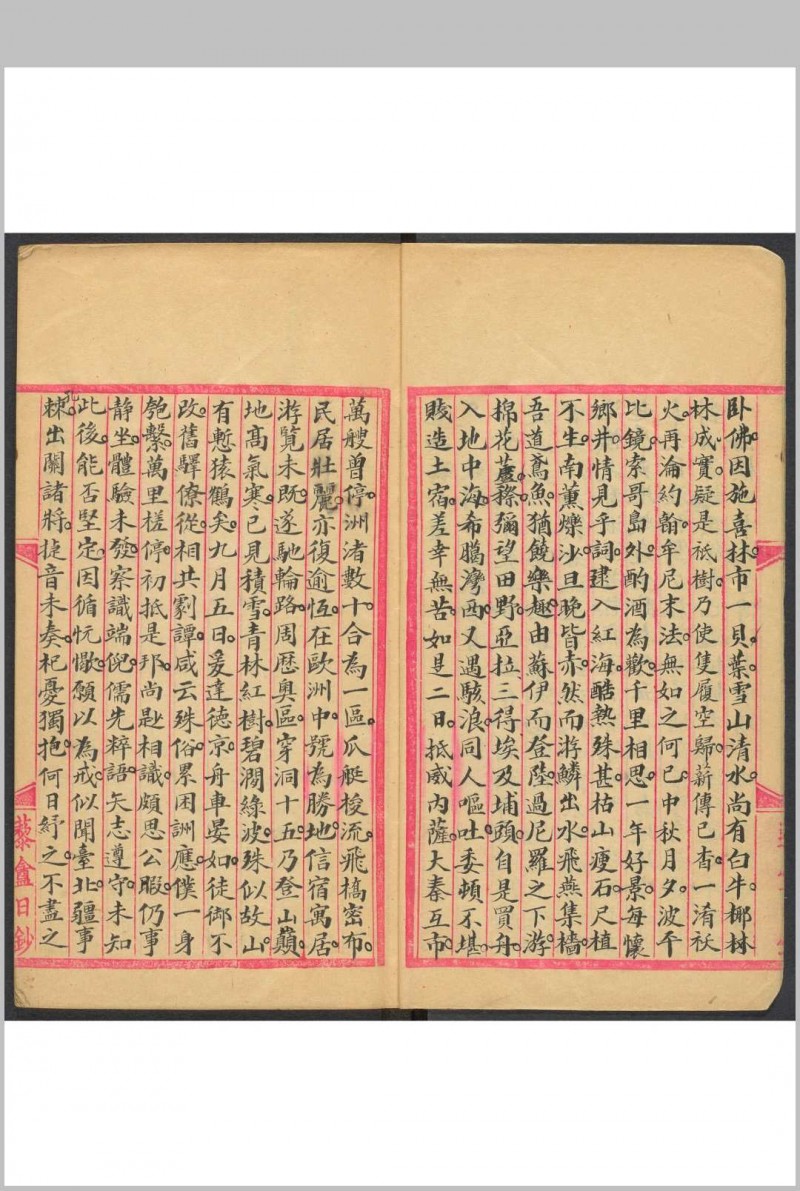 卧佛。因施喜林。市一貝葉。雪山清水。尚有白牛。椰林
林成實。疑是祇樹。乃使隻履空歸。薪傳已杳。一淆祅
火。再淪約翰。牟尼末法。無如之何。已中秋月夕。波平
比鏡。索哥島外。酌酒為歡。千里相思。一年好景。每懷
鄉井。情見乎詞。建入紅海。酷熱殊甚。枯山瘦石。尺植
不生。南薰爍沙。旦晚皆赤。然而游鱗出水。飛燕集檣。
吾道鳶魚。猶饒樂趣。由蘇伊而登陸。過尼羅之下游。
棉花蘆穄。彌望田野。亞拉三得。埃及埔頭。自是買舟。
入地中海。希臈灣西。又遇駭浪。同人嘔吐。委頓不堪。
賤造土宿。差幸無苦。如是二日。抵威內薩。大秦互市。
萬艘曾停。洲渚數十。合為一區。瓜艇梭流。飛橋密布。
民居壯麗。亦復逾恆。在歐洲中。號為勝地。信宿寓居。
游覽未既。遂馳輪路。周歷奧區。穿洞十五。乃登山巔。
地高氣寒。已見積雪。青林紅樹。碧澗綠波。殊似故山。
有慙猿鶴矣。九月五日。爰達德京。舟車晏如。徒御不
改。舊驛僚從。相共劇譚。咸云殊俗。累困詶應。僕一身
匏繫。萬里槎停。初抵是邦。尚尟相識。頗思公暇。仍事
静坐。體驗未發。察識端倪。儒先粹語。矢志遵守。未知
此後。能否堅定。因循忨愒。願以為戒。似聞臺北。疆事
棘。出關諸將。捷音未奏。杞憂獨抱。何日紓之。不盡之
藜盦日鈔